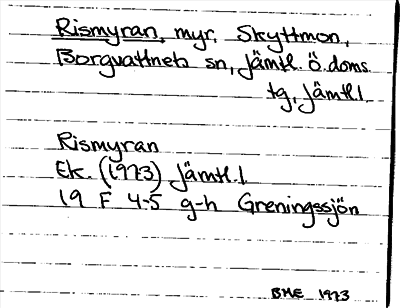 Rismyran, myr, Skyttmon,
Borgvattnets sn, Jämtl. Ö. doms.
tg, Jämtl.l.
Rismyran
Ek. (1973) Jämtl.l
19 F 4-5 g-h Greningssjön
BME 1973